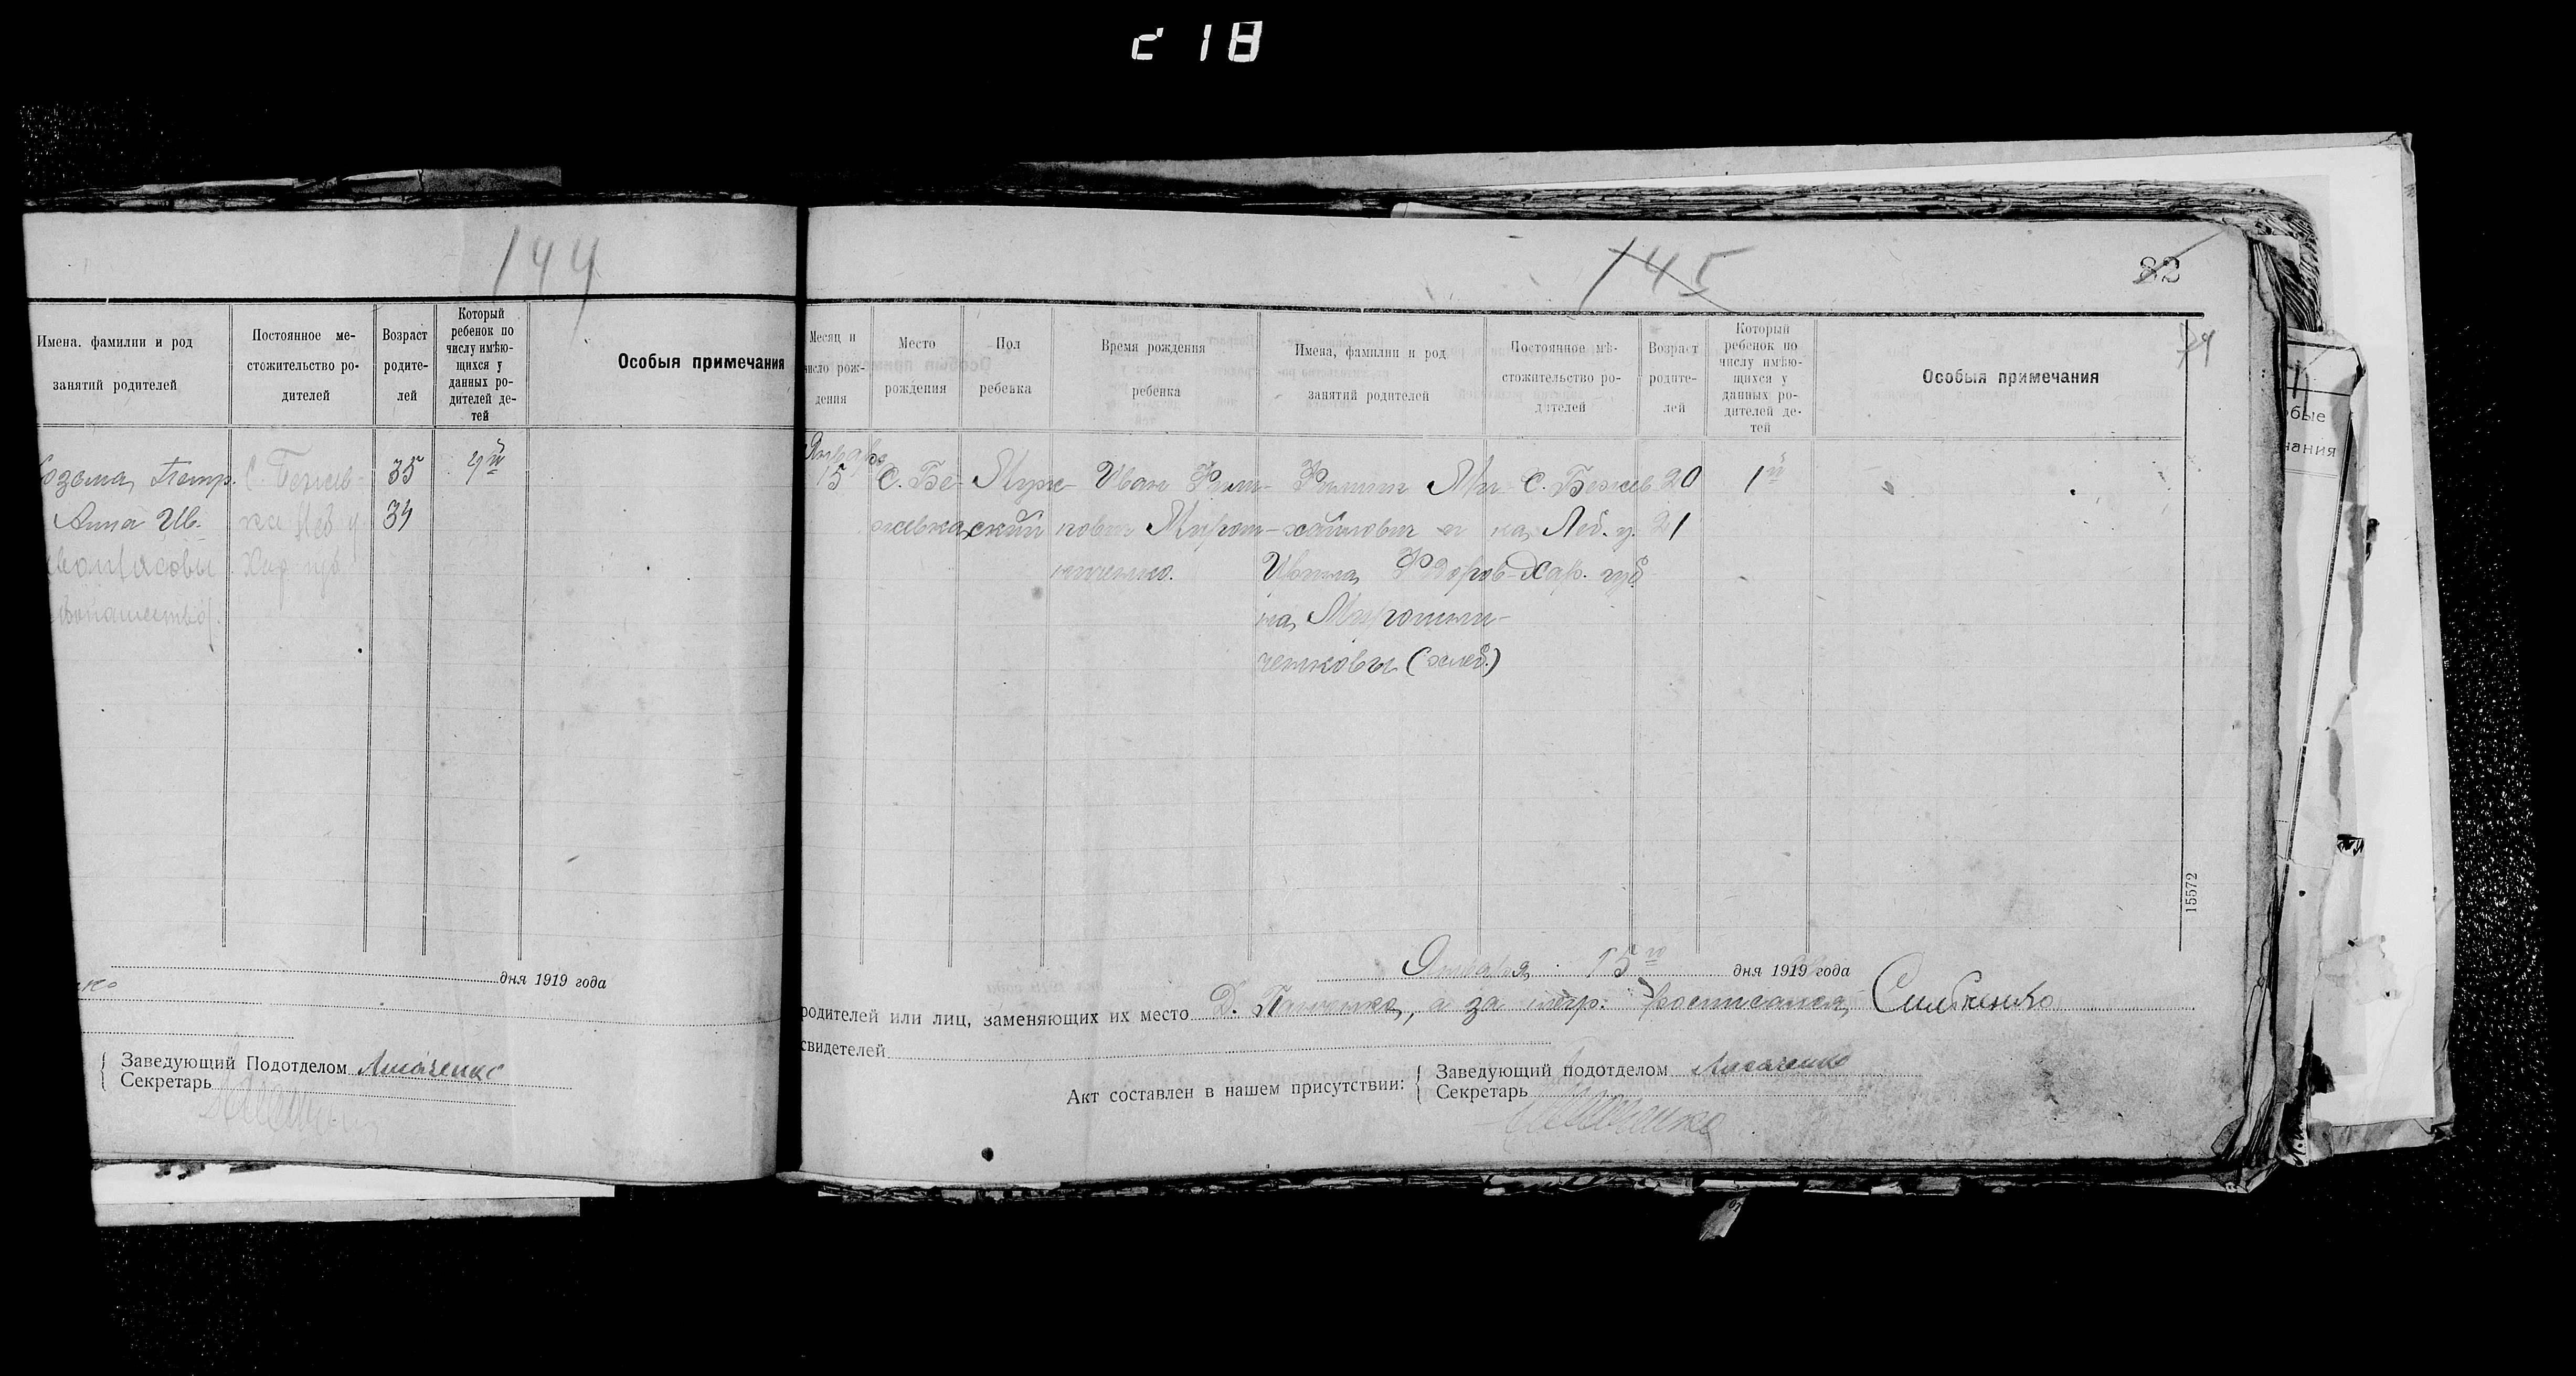 c 18
144
Имена, фамилии и род
занятий родителей
Постоянное ме-
стожительство ро-
дителей
Возраст
родите-
лей
Который
ребенок по
числу имѣю-
щихся у
данных ро-
дителей де-
тей
Особыя примечания
Петр.
Анна Ив.
С. Бежев-
ка Леб у.
Хар. губ.
35
34
4й
дня 1919 года
Заведующий Подотделом
Секретарь
145
82
74
Месяц и
число рож-
дения
Место
рождения
Пол
ребенка
Время рождения
ребенка
Имена, фамилии и род
занятий родителей
Постоянное мѣ-
стожительство ро-
дителей
Возраст
родите-
лей
Который
ребенок по
числу имѣю-
щихся у
данных ро-
дителей де-
тей
Особыя примечания
Января
15
С. Бе-
жевка
Муж-
ский
Иван Фили-
пович Мирош-
ниченко.
Филипп Ми-
хайлович и
Федоров-
на Мирошни-
ченковы (хлеб.)
С. Бежев
ка, Леб. у.
Хар. губ.
20
21
1й
15572
Января 15го дня 1919 года
родителей или лиц, заменяющих их место а за негр. росписался
свидетелей
Акт составлен в нашем присутствии:
Заведующий подотделом
Секретарь
обые
чания